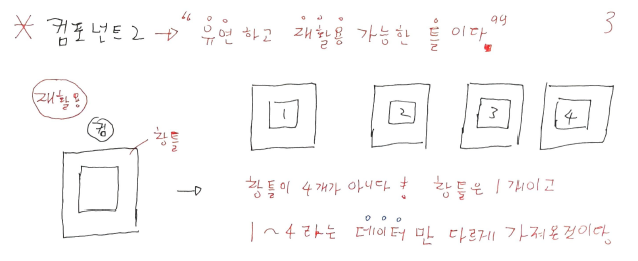 * 컴포넌트2 → "유연하고 재활용 가능한 틀이다" 3
재활용
컴
창틀
1 2 3 4
창틀이 4개가 아니다! 창틀은 1개이고
1~4라는 데이터만 다르게 가져온것이당